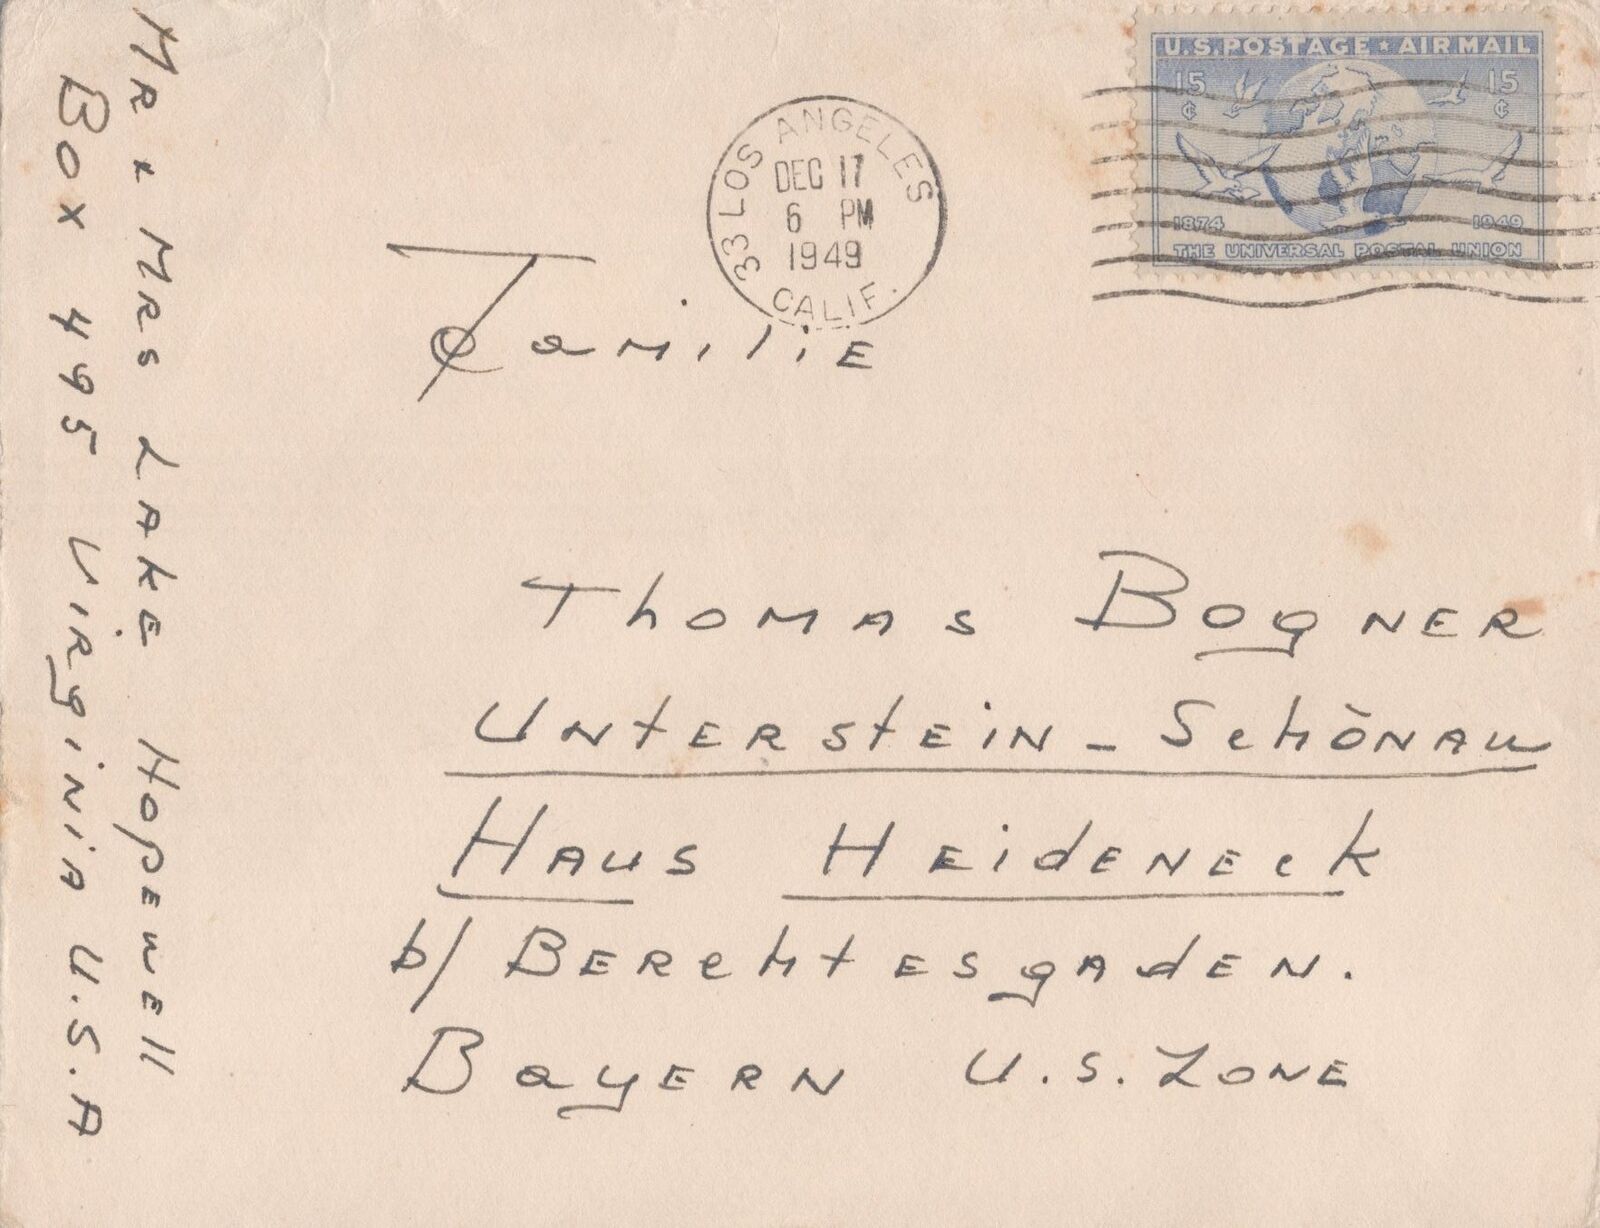 Mr & Mrs Lake Hopewell
Box 495 Virginia U.S.A
33 LOS ANGELES CALIF.
DEC 17
6 PM
1949
U.S. POSTAGE ★ AIR MAIL
15¢ 15¢
1874 1949
THE UNIVERSAL POSTAL UNION
Familie
Thomas Bogner
Unterstein - Schönau
Haus Heideneck
b/ Berchtesgaden.
Bayern U.S. Zone